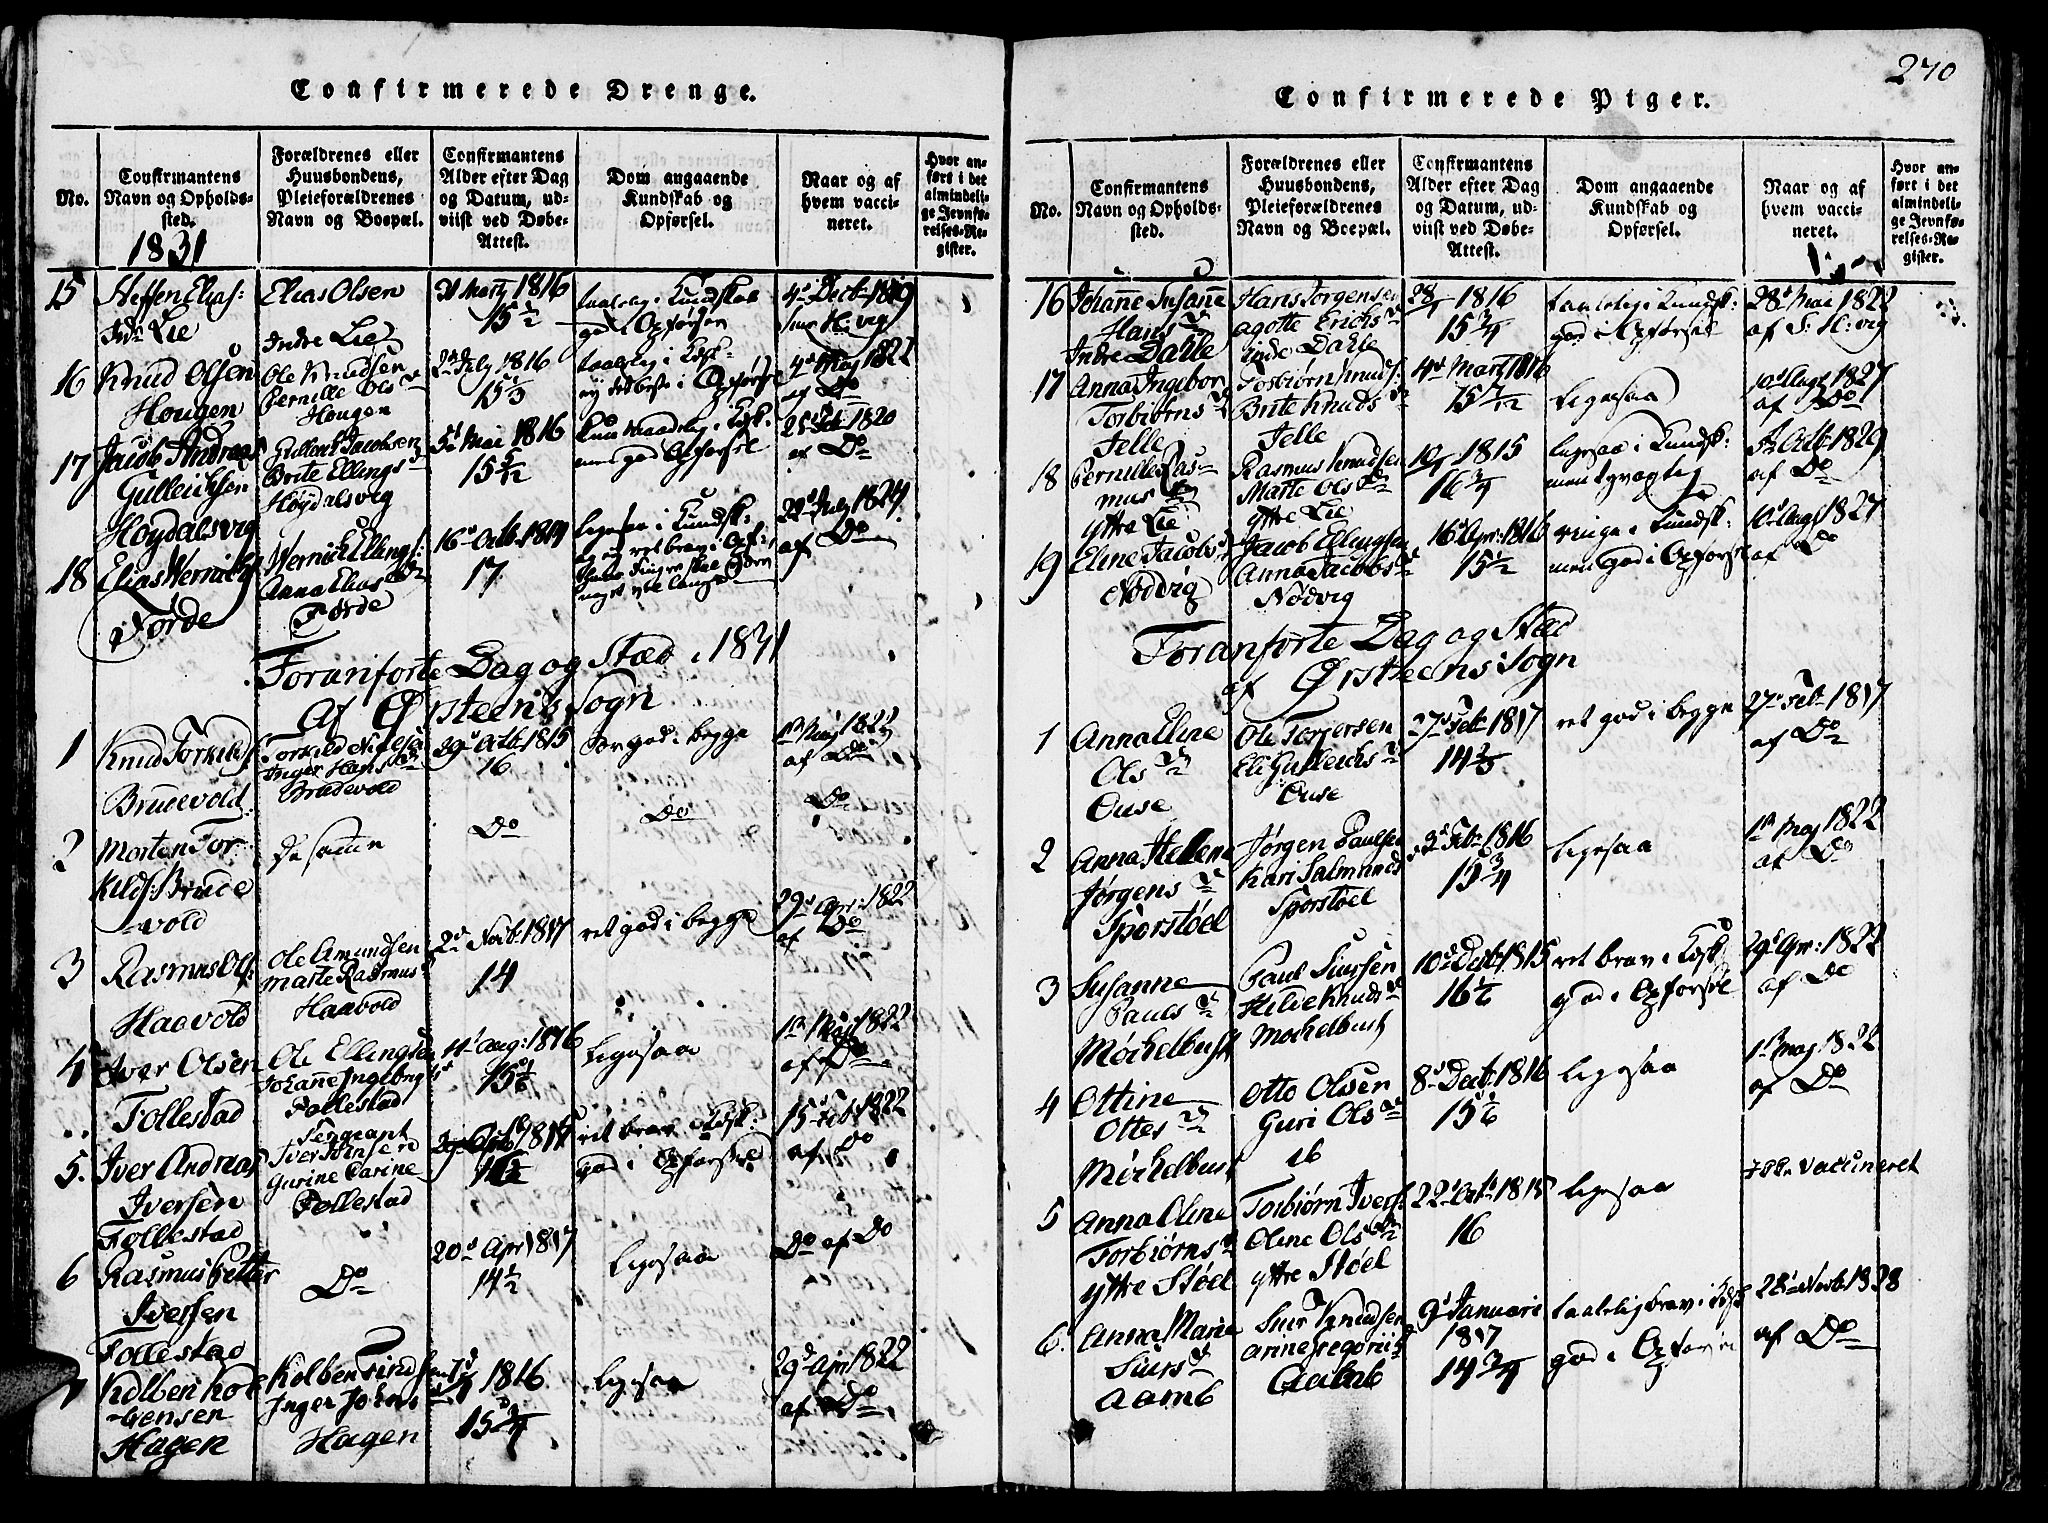 Confirmerede Drenge.
No.
Confirmantens
Navn og Opholds-
sted.
1831
Forældrenes eller
Huusbondens,
Pleieforældrenes
Navn og Boepæl.
Confirmantens
Alder efter Dag
og Datum, ud-
viist ved Døbe-
Attest.
Dom angaaende
Kundskab og
Opførsel.
Naar og af
hvem vacci-
neret.
Hvor an-
ført i det
almindeli-
ge Jevnfø-
relses-Re-
gister.
15
Steffen Elias:
Indr Lie
Elias Olsen
Indre Lie
1816
15 1/2
taalelig i Kundskab
god i Opførsen
4de Decb: 1819
16
Knud Olsen
Hougen
Ole Knudsen
Pernille Ols D
Hougen
2 July 1816
15 1/3
4de Maj 1822
af Do
17
Jacob Andreas
Gulleriksen
Høydalsvig
Gullerik Jacobsen
Brite Ellings D
Høydalsvig
5 Mai 1816
15 5/12
men god Opførsel
25 Feb 1820
af Do
18
Elias Wernich
Førde
Wernich Ellings:
Anna Elias D
Førde
16 Octb. 1814
17
ligesaa i Kundsk:
22 July 1824
af Do
Foranførte Dag og Stæd 1831
Af Ørsteens Sogn
1
Knud Torkilds:
Bruuevold
Torkild Nielsen
Inger Hans D
Brudevold
29 Octb 1815
16
god i begge
1te Maj 1822
af Do
2
Morten Tor-
kilds: Brude
vold
De samme
Do
Do
Do
3
Rasmus Ols:
Haavold
Ole Amundsen
Marte Rasmus
Haavold
2 Novb: 1817
14
ret god i begge
29 Apr: 1822
af Do
4
Iver Olsen
Follestad
Ole Ellingsen
Johanne Ingebrigt
Follestad
14 aug: 1816
15 1/6
ligesaa
1te Maj 1822
af Do
5.
Iver Andreas
Iversen
Follestad
Sergeant
Gurine Carine
Follestad
16 1/2
ret brav i Kdsk:
god i Opførsel
15 Feb 1822
af Do
6
Rasmus Petter
Iversen
Follestad
Do
20 Apr 1817
14 1/2
ligesaa
Do af Do
7
Kolben Kol
bensen
Hagen
Inger Johns
Hagen
1816
15 3/4
ligesaa
29 Apr 1822
af Do
270
Confirmerede Piger.
No.
Confirmantens
Navn og Opholds-
sted.
Forældrenes eller
Huusbondens,
Pleieforældrenes
Navn og Boepæl.
Confirmantens
Alder efter Dag
og Datum, ud-
viist ved Døbe-
Attest.
Dom angaaende
Kundskab og
Opførsel.
Naar og af
hvem vacci-
neret.
Hvor an-
ført i det
almindeli-
ge Jevnfø-
relses-Re-
gister.
16
Johanne Susanne
Hans D
Indre Dahle
Hans Jørgensen
agotte Erichs D
Indre Dahle
1816
15 3/4
taalelig i Kundsk:
god i Opførsel
28 Mai 1822
af S: H: vig
17
Anna Ingebor
Torbiørns D
Jelle
Torbiørn Knuds:
Brite Knuds D
Jelle
4de Mart 1816
15 7/12
ligesaa
10 Aug 1827
af Do
18
Pernille Ras-
mus D
Ytre Lie
Rasmus Knudsen
Marte Ols D
Ytre Lie
1815
16 3/4
ligesaa i Kundsk:
Octb 1829
af Do
19
Eline Jacobs D
Nødvig
Jacob Ellingsen
Anna Jacobs D
Nødvig
16 Apr: 1816
15 1/2
ringe i Kundsk:
men god i Opførsel
10 Aug 1827
af Do
Foranførte Dag og Stæd
af Ørsteens Sogn
1
Anna Eline
Ols D
Ouse
Ole Torgersen
Eli Gulleriks D
Ouse
27 Feb 1817
14 2/3
ret god i begge
27 Feb 1817
af Do
2
Anna Hellene
Jørgens D
Sporstøel
Jørgen Paulsen
Kari Salmunds
Sporstøel
3 Feb 1816
15 3/4
ligesaa
1te Maj 1822
af Do
3
Susanne
Pauls D
Møchelbust
Paul Siursen
Hilde Knuds D
Mochelbust
10 Decb. 1815
ret brav i Kdsk
god i Opførsel
29 Apr: 1822
af Do
4
Ottine
Ottes D
Møchelbust
Otto Olsen
Guri Ols D
ib
8 Decb: 1816
15 1/6
ligesaa
af Do
5
Anna Oline
Torbiørns D
Ytre Støel
Torbiørn Ivers:
Oline Ols D
Ytre Støel
22 Oct: 1815
16
ligesaa
vaccineret
6.
Anna Marie
Siurs D
Aamb
Siur Knudsen
9 Januari
1817
14 3/4
taalelig brav i Kdsk
god i Opførsel
28 Novb 1828
af Do